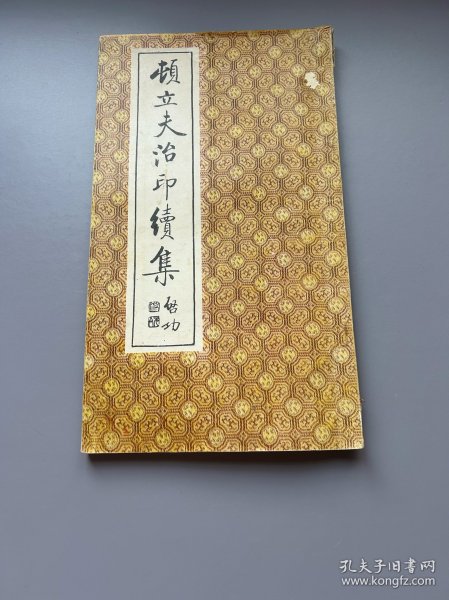 頓立夫治印續集
啓功
孔夫子旧书网
www.kongfz.com